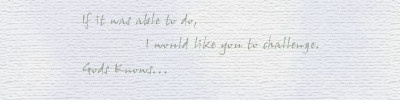 If it was able to do,
I would like you to challenge.
Gods Knows...